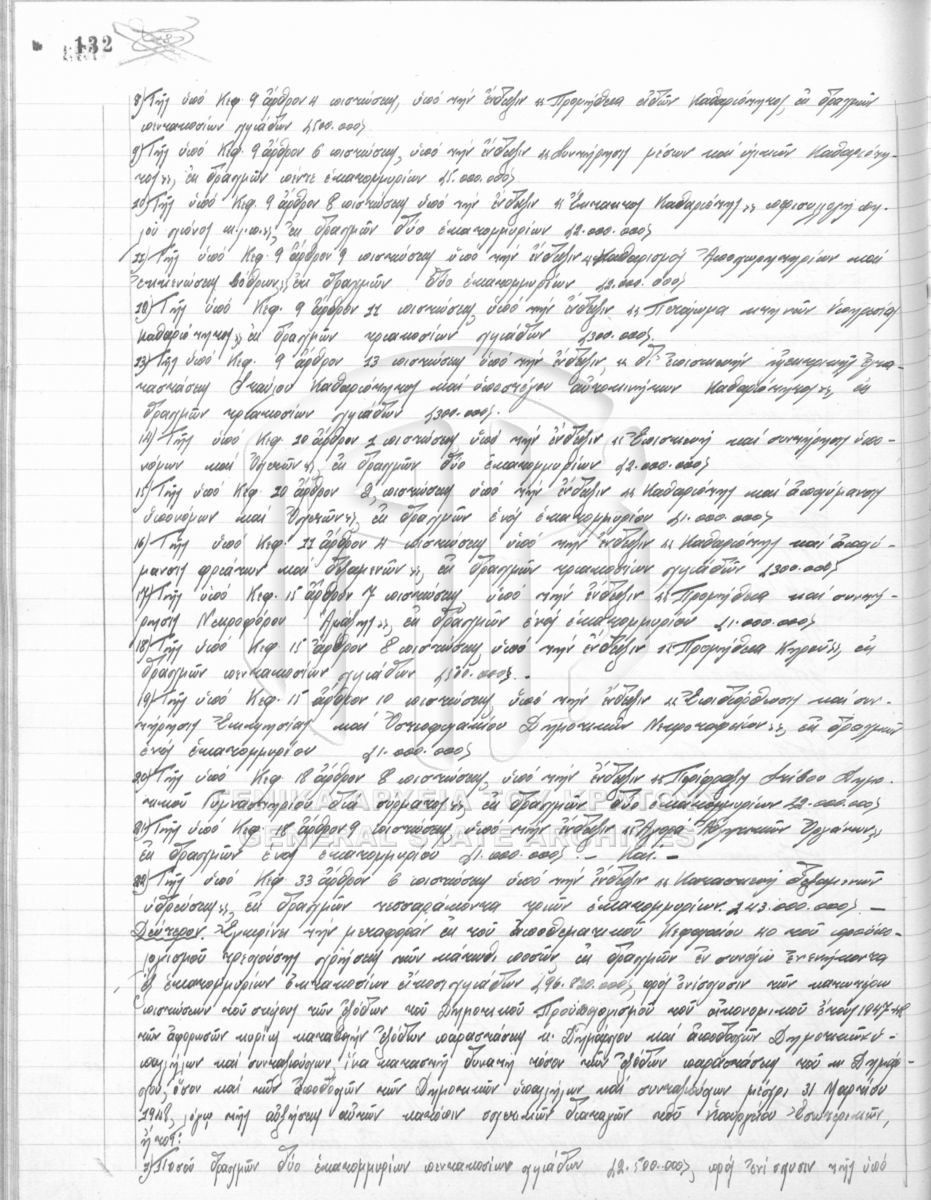 132
8) Τῆς ὑπό Κεφ. 9 ἄρθρον 4 πιστώσεως, ὑπό τήν ἔνδειξιν «Προμήθεια εἰδῶν Καθαριότητος, ἐκ δραχμῶν
πεντακοσίων χιλιάδων (500.000)
9) Τῆς ὑπό Κεφ. 9 ἄρθρον 6 πιστώσεως, ὑπό τήν ἔνδειξιν «Συντήρησις μέσων καί ὑλικῶν Καθαριότη-
τος», ἐκ δραχμῶν πέντε ἑκατομμυρίων (5.000.000)
10) Τῆς ὑπό Κεφ. 9 ἄρθρον 8 πιστώσεως ὑπό τήν ἔνδειξιν «Ἔκτακτος Καθαριότης
χιόνος κ.λ.π.», ἐκ δραχμῶν δύο ἑκατομμυρίων (2.000.000)
11) Τῆς ὑπό Κεφ. 9 ἄρθρον 9 πιστώσεως ὑπό τήν ἔνδειξιν «Καθαρισμός Ἀποχωρητηρίων καί
ἐκκενώσεως Βόθρων», ἐκ δραχμῶν δύο ἑκατομμυρίων (2.000.000)
12) Τῆς ὑπό Κεφ. 9 ἄρθρον 11 πιστώσεως, ὑπό τήν ἔνδειξιν «Πετάλωμα κτηνῶν Ὑπηρεσίας
Καθαριότητος» ἐκ δραχμῶν τριακοσίων χιλιάδων (300.000)
13) Τῆς ὑπό Κεφ. 9 ἄρθρον 13 πιστώσεως ὑπό τήν ἔνδειξιν «δι' ἐπισκευήν ἠλεκτρικῆς ἐγκα-
ταστάσεως Σταύλου Καθαριότητος καί ὑποστέγου αὐτοκινήτων Καθαριότητος», ἐκ
δραχμῶν τριακοσίων χιλιάδων (300.000).
14) Τῆς ὑπό Κεφ. 10 ἄρθρον 1 πιστώσεως, ὑπό τήν ἔνδειξιν «Ἐπισκευή καί συντήρησις ὑπο-
νόμων καί Ὀχετῶν», ἐκ δραχμῶν δύο ἑκατομμυρίων (2.000.000)
15) Τῆς ὑπό Κεφ. 10 ἄρθρον 2, πιστώσεως ὑπό τήν ἔνδειξιν «Καθαριότης καί ἀπολύμανσις
ὑπονόμων καί Ὀχετῶν», ἐκ δραχμῶν ἑνός ἑκατομμυρίου (1.000.000)
16) Τῆς ὑπό Κεφ. 11 ἄρθρον 4 πιστώσεως ὑπό τήν ἔνδειξιν «Καθαριότης καί ἀπολύ-
μανσις φρεάτων καί δεξαμενῶν», ἐκ δραχμῶν τριακοσίων χιλιάδων (300.000)
17) Τῆς ὑπό Κεφ. 15 ἄρθρον 7 πιστώσεως ὑπό τήν ἔνδειξιν «Προμήθεια καί συντή-
ρησις Νεκροφόρου Ἁμάξης», ἐκ δραχμῶν ἑνός ἑκατομμυρίου (1.000.000)
18) Τῆς ὑπό Κεφ. 15 ἄρθρον 8 πιστώσεως, ὑπό τήν ἔνδειξιν «Προμήθεια Κηροῦ», ἐκ
δραχμῶν πεντακοσίων χιλιάδων (500.000). –
19) Τῆς ὑπό Κεφ. 15 ἄρθρον 10 πιστώσεως, ὑπό τήν ἔνδειξιν «Ἐπιδιόρθωσις καί συν-
τήρησις Ἐκκλησίας καί Ὀστεοφυλακίου Δημοτικῶν Νεκροταφείων», ἐκ δραχμῶν
ἑνός ἑκατομμυρίου (1.000.000)
20) Τῆς ὑπό Κεφ. 18 ἄρθρον 8 πιστώσεως, ὑπό τήν ἔνδειξιν «Περίφραξις Στίβου Δημο-
τικοῦ Γυμναστηρίου διά σύρματος», ἐκ δραχμῶν δύο ἑκατομμυρίων (2.000.000)
21) Τῆς ὑπό Κεφ. 18 ἄρθρον 9 πιστώσεως, ὑπό τήν ἔνδειξιν «Ἀγορά Ἀθλητικῶν Ὀργάνων»,
ἐκ δραχμῶν ἑνός ἑκατομμυρίου (1.000.000). – Καί. –
22) Τῆς ὑπό Κεφ. 33 ἄρθρον 6 πιστώσεως ὑπό τήν ἔνδειξιν «Κατασκευή δεξαμενῶν
ὑδρεύσεως», ἐκ δραχμῶν τεσσαράκοντα τριῶν ἑκατομμυρίων (43.000.000). –
Δεύτερον. Ἐγκρίνει τήν μεταφοράν ἐκ τοῦ ἀποθεματικοῦ Κεφαλαίου 40 τοῦ προϋπο-
λογισμοῦ τρεχούσης χρήσεως τῶν κάτωθι ποσῶν ἐκ δραχμῶν ἐν συνόλῳ ἐνενήκοντα
ἕξ ἑκατομμυρίων ὀκτακοσίων εἴκοσι χιλιάδων (96.820.000), πρός ἐνίσχυσιν τῶν κατωτέρω
πιστώσεων τοῦ σκέλους τῶν ἐξόδων τοῦ Δημοτικοῦ Προϋπολογισμοῦ τοῦ οἰκονομικοῦ ἔτους 1947-48
τῶν ἀφορωσῶν κυρίως καταβολήν ἐξόδων παραστάσεως κ. Δημάρχου καί ἀποδοχῶν Δημοτικῶν ὑ-
παλλήλων καί συνταξιούχων, ἵνα καταστῇ δυνατή τόσον τῶν ἐξόδων παραστάσεως τοῦ κ. Δημάρ-
χου, ὅσον καί τῶν ἀποδοχῶν τῶν Δημοτικῶν ὑπαλλήλων καί συνταξιούχων μέχρι 31 Μαρτίου
1948, λόγῳ τῆς αὐξήσεως αὐτῶν κατόπιν σχετικῶν διαταγῶν τοῦ Ὑπουργείου Ἐσωτερικῶν,
ἤτοι:
1) Ποσοῦ δραχμῶν δύο ἑκατομμυρίων πεντακοσίων χιλιάδων (2.500.000), πρός ἐνίσχυσιν τῆς ὑπό
ΓΕΝΙΚΑ ΑΡΧΕΙΑ ΤΟΥ ΚΡΑΤΟΥΣ
GENERAL STATE ARCHIVES